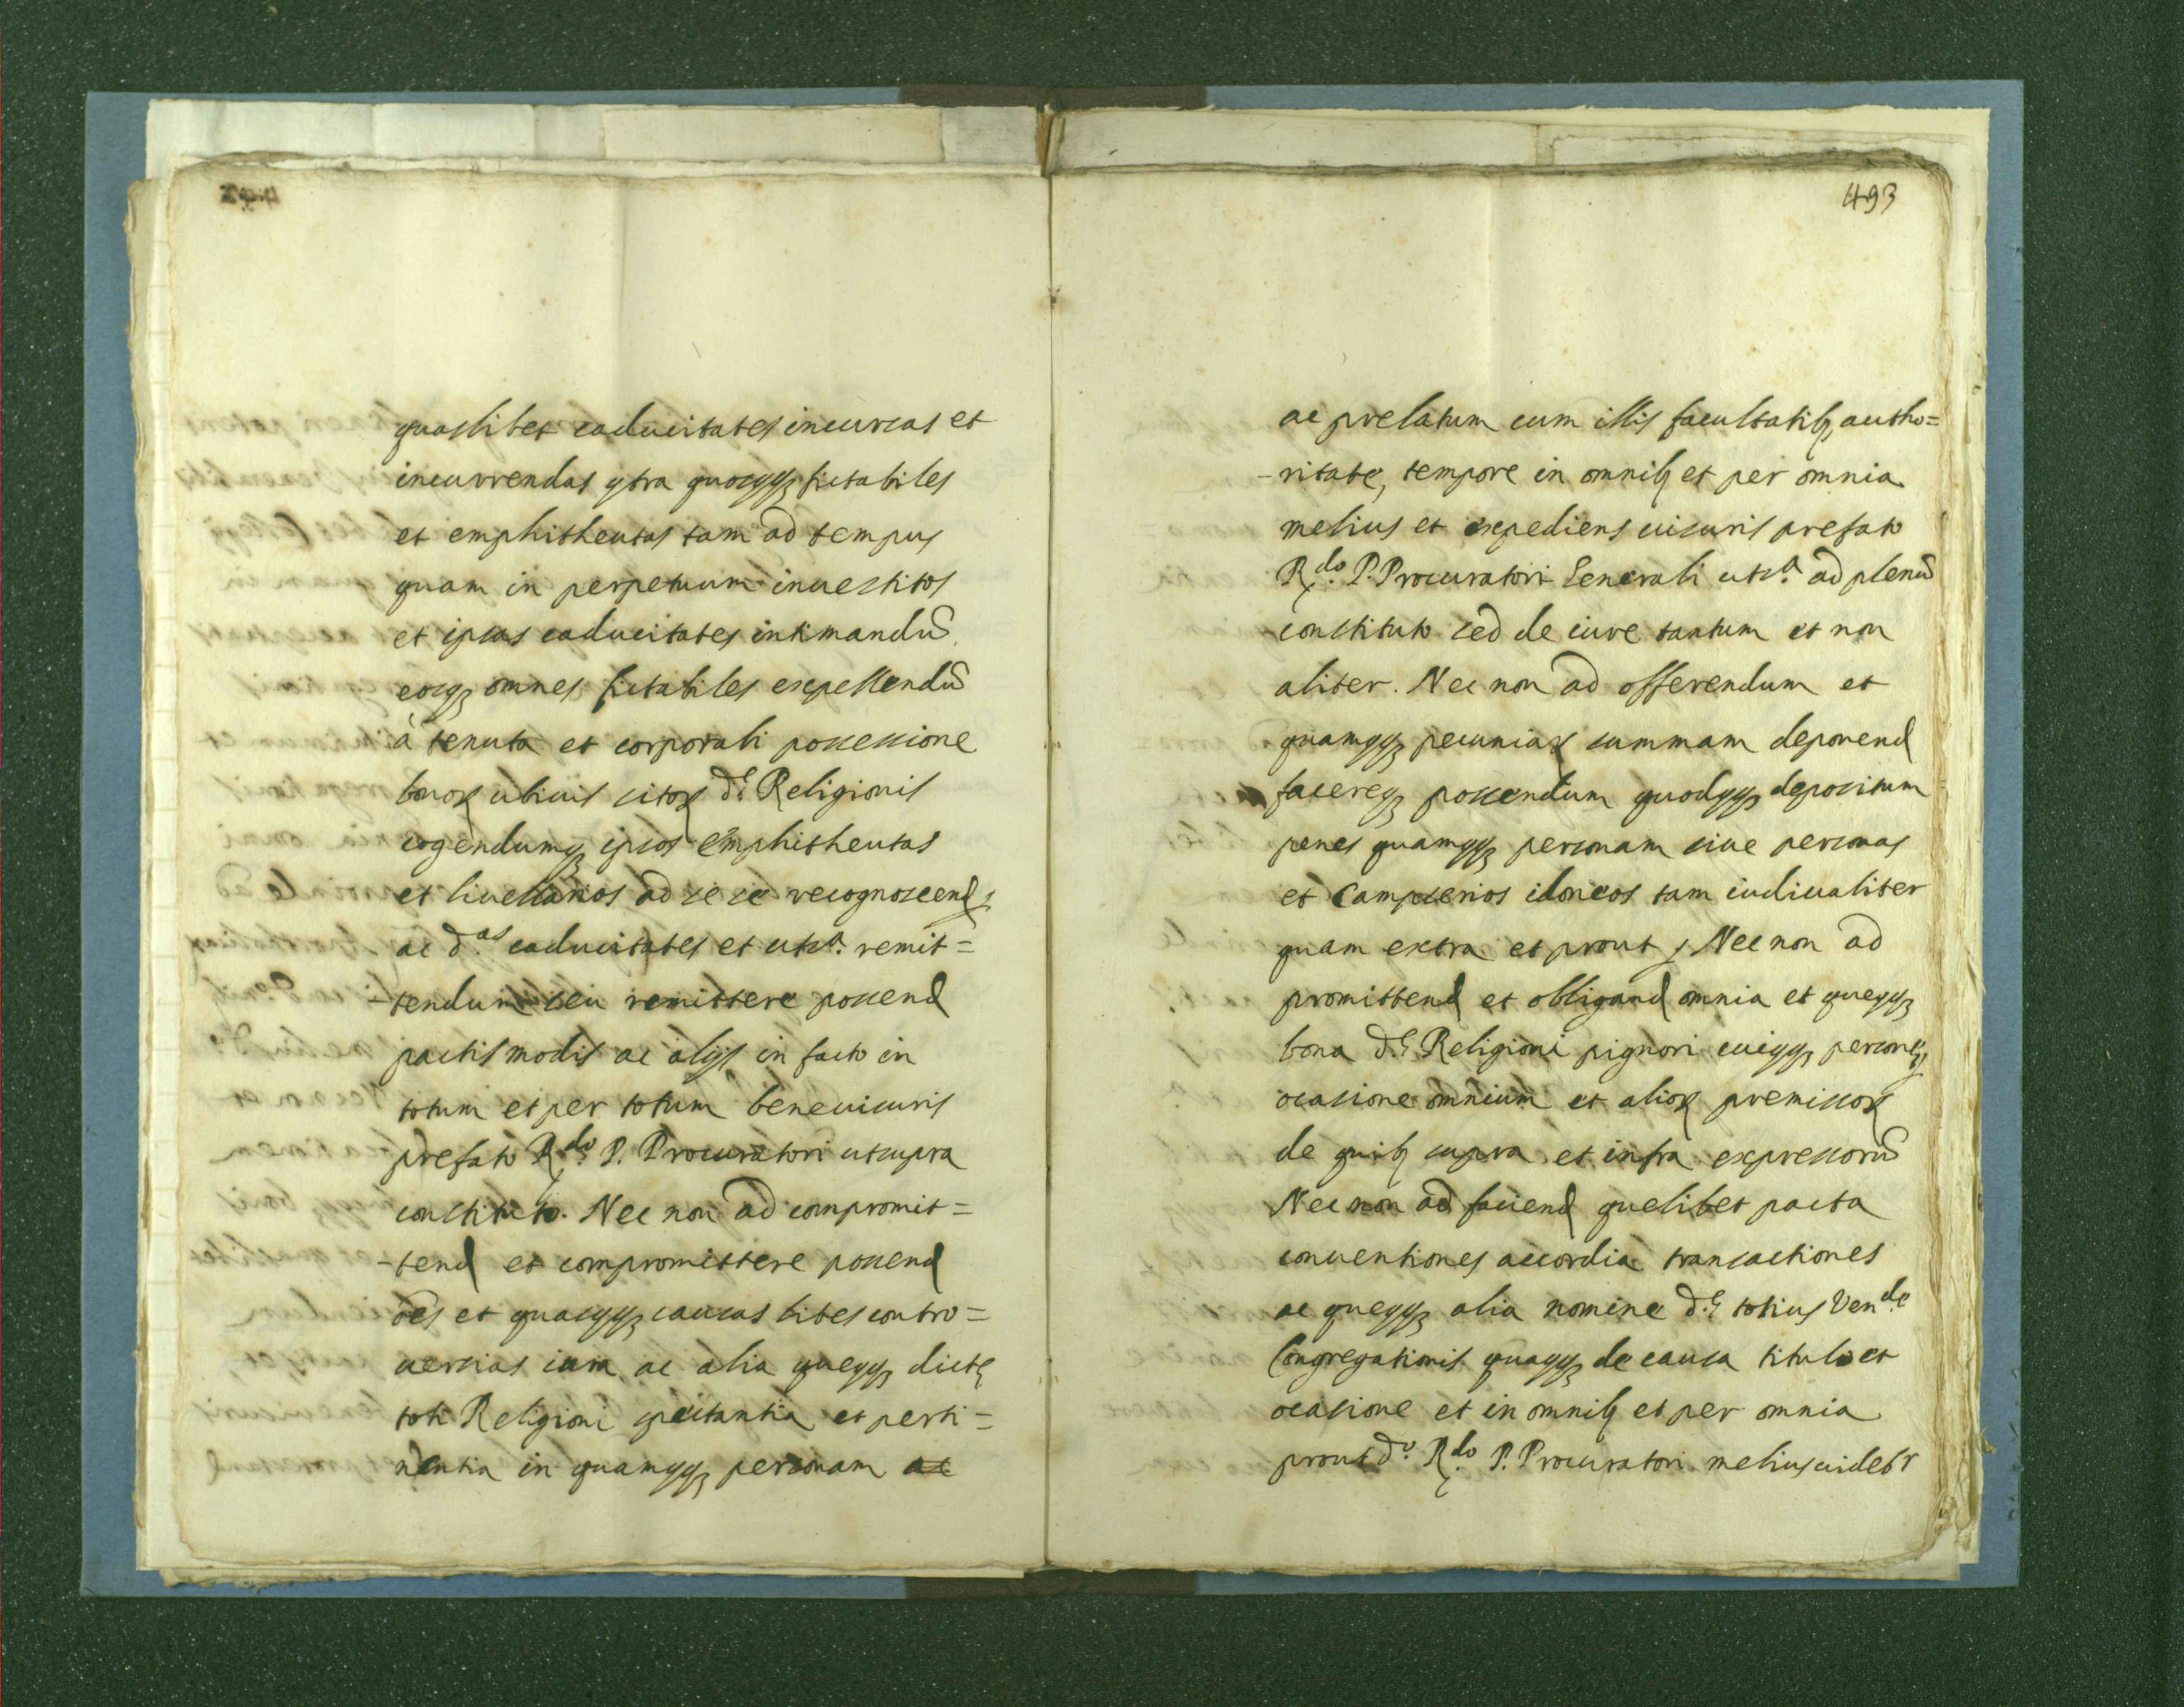 quaslibet caducitates incursas et
incurrendas cõtra quoscũq; fictabiles
et emphitheutas tam ad tempus
quam in perpetuum inuestitos
et ipsas caducitates intimandũ
eosq; omnes fictabiles expellendũ
à tenuta et corporali possessione
bonoꝝ ubiuis sitoꝝ d.ę Religionis
cogendumq; ipsos emphitheutas
et liuellarios ad se se recognoscend
ac d.as caducitates et ut s.a remit=
-tendum seu remittere possend
pactis modis ac alijs in facto in
totum et per totum bene uisuris
prefato R.do P. Procuratori ut supra
constituto. Nec non ad compromit=
-tend et compromittere possend
oẽs et quascũq; causas lites contro=
uersias iura ac alia quęcũq; dictę
toti Religioni spectantia et perti=
nentia in quamcũq; personam ac
493
ac prelatum cum illis facultatib; autho=
-ritate, tempore in omnib; et per omnia
melius et expediens uisuris prefato
R.do P. Procuratori Generali ut s.a ad plenũ
constituto sed de iure tantum et non
aliter. Nec non ad offerendum et
quamcũq; pecuniaꝝ summam deponend
facereq; possendum quodcũq; depositum
penes quamcũq; personam siue personas
et Campserios idoneos tam iudicialiter
quam extra et prout Nec non ad
promittend et obligand omnia et quęcũq;
bona d.ę Religioni pignori cuicũq; personę
ocasione omnium et alioꝝ premissoꝝ
de quib; supra et infra expressorũ
Nec non ad faciend quelibet pacta
conuentiones accordia transactiones
ac quęcũq; alia nomine d.ę totius Ven.de
Congregationis quacũq; de causa titulo et
ocasione et in omnib; et per omnia
prout d.o R.do P. Procuratori melius uidebr